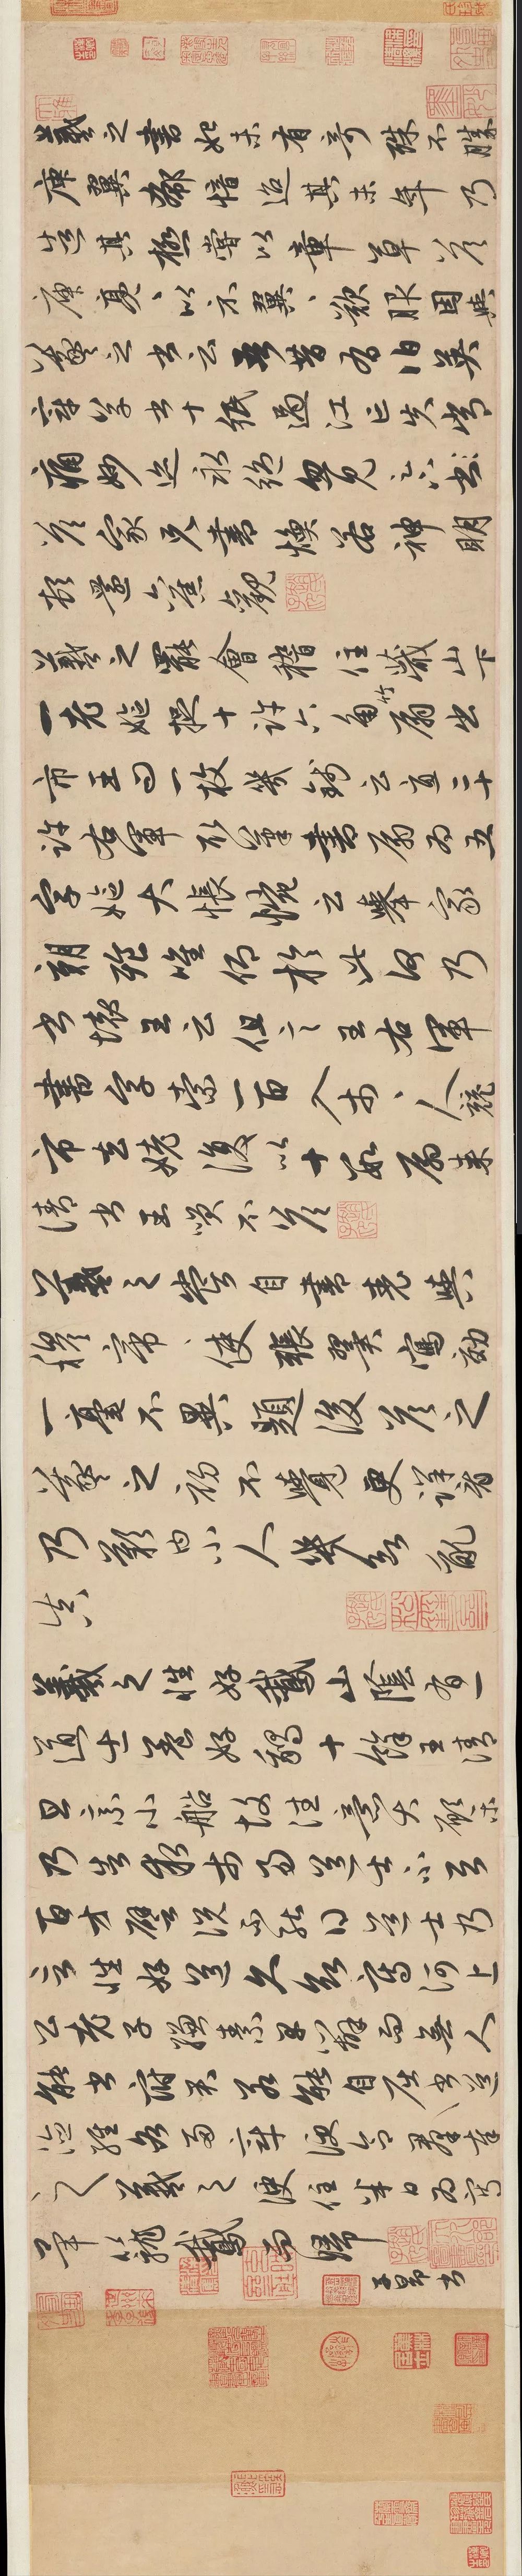 羲之書初未有奇殊不勝
庾翼郗愔迨其末年乃
造其極嘗以章草答
庾亮亮以示翼翼歎服因與
羲之書云吾昔有伯英
章草書十紙過江亡失常
痛妙迹永絕忽見足下
答家兄書煥若神明
頓還舊觀
羲之罷會稽住蕺山下
一老嫗捉十許六角竹扇出
市王問一枚幾錢云直二十
許右軍取筆書扇扇為五
字嫗大悵惋云舉家
朝飡唯仰於此何乃
書壞王云但言王右軍
書字索一百入市市人競
市去姥復以十數扇來
請書王笑不答
羲之嘗自書表與
穆帝帝使張翼寫效
一毫不異題後答之
羲之初不覺更詳看
乃歎曰小人幾欲亂
真
羲之性好鵝山陰有一
道士養好鵝十餘王清
旦乘小船故往意大願樂
乃告求市易道士不與
百方譬說不能得道士乃
言性好道久欲寫河上
公老子縑素早辦而無人
能書府君若能自屈書道
德經各兩章便合群以奉
之羲之便住半日為寫
畢籠鵝而歸
子昂書